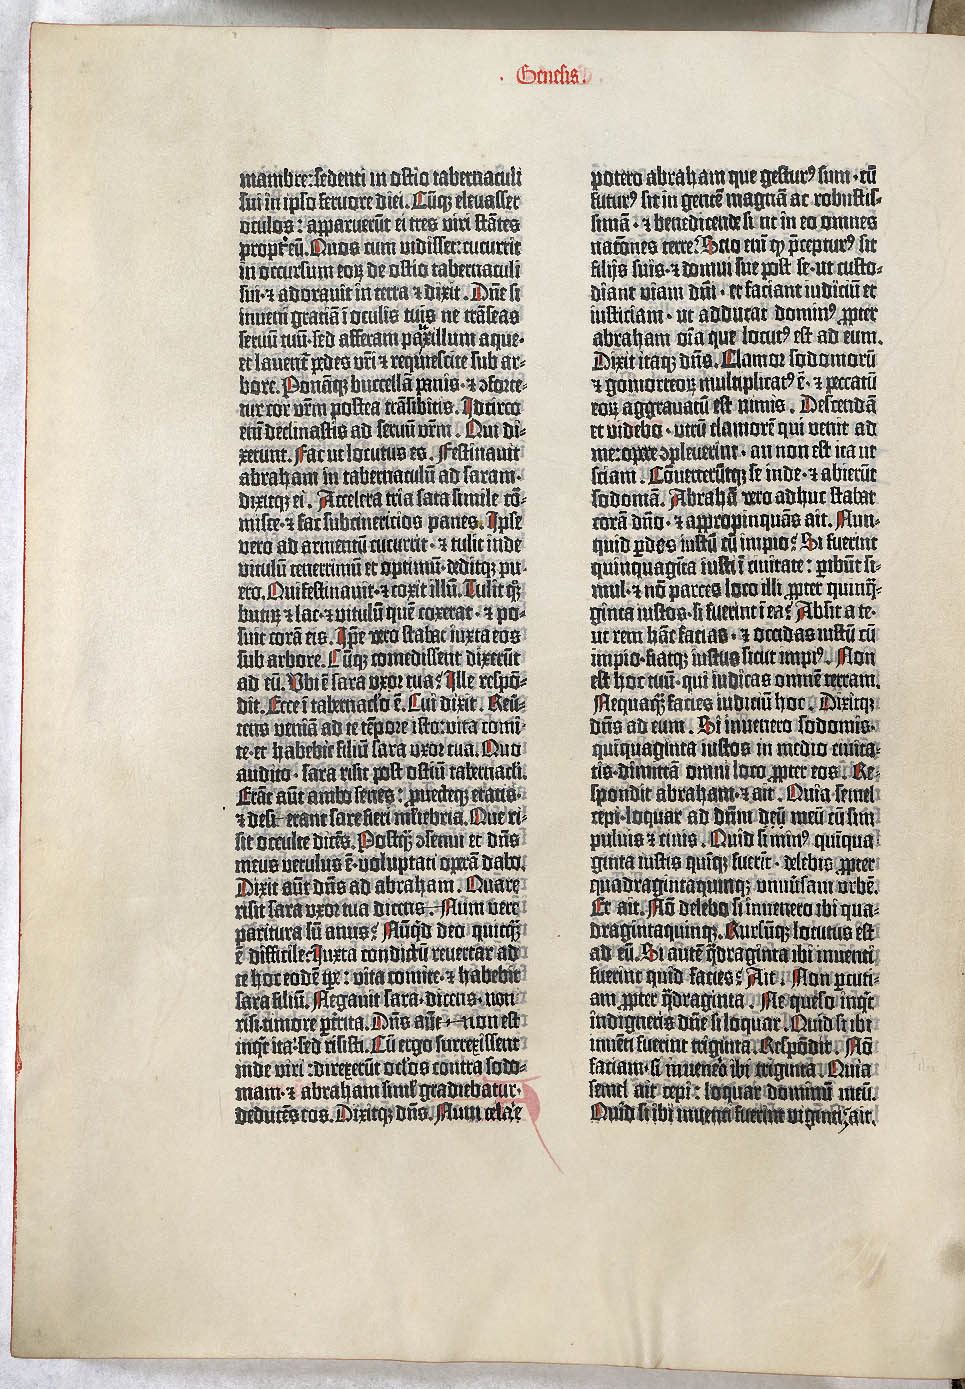 Genesis.
mambre: sedenti in ostio tabernaculi
sui in ipso fervore diei. Cūq; elevasset
oculos: apparuerūt ei tres viri stātes
propt̉ eū. Quos cum vidisset: cucurrit
in occursum eoꝝ de ostio tabernaculi
sui · ⁊ adoravit in terra ⁊ dixit. Dn̄e si
inveni gratiā ī oculis tuis ne trāseas
servū tuū · sed afferam pauxillum aque ·
et lavent̄ pedes vr̄i ⁊ requiescite sub ar-
bore. Ponāq; buccellā panis · ⁊ ɔforte-
tur cor vr̄m postea trāsibitis. Idcirco
eni declinastis ad servū vr̄m. Qui di-
xerunt. Fac ut locutus es. Festinavit
abraham in tabernaculū ad saram ·
dixitq; ei. Accelera tria sata simile cō-
misce · ⁊ fac subcinericios panes. Ipse
vero ad armentū cucurrit · ⁊ tulit inde
vitulū tenerrimū et optimū · deditq; pu-
ero. Qui festinavit · ⁊ coxit illū. Tulit q̄;
butiꝝ ⁊ lac · ⁊ vitulū quē coxerat · ⁊ po-
suit corā eis. Ip̄e vero stabat iuxta eos
sub arbore. Cūq; comedissent dixerūt
ad eū. Ubi ē sara uxor tua? Ille respō-
dit. Ecce ī tabernac̄lo ē. Cui dixit. Rev̄-
tens veniā ad te tēpore isto: vita comi-
te · et habebit filiū sara uxor tua. Quo
audito · sara risit post ostiū tabernac̄li.
Erāt aūt ambo senes: pvecteq; etatis ·
⁊ desierant sare fieri muliebria. Que ri-
sit occulte dicēs. Postq̄; ɔsenui et dn̄s
meus vetulus ē · voluptati operā dabo.
Dixit aūt dn̄s ad abraham. Quare
risit sara uxor tua dicens. Num vere
paritura sū anus? Nūq̄d deo quicq̄;
ē difficile? Iuxta condictū revertar ad
te hoc eodē tp̄e: vita comite · ⁊ habebit
sara filiū. Negavit sara · dicens · non
risi: timore pt̄rita. Dn̄s aūt · non est
inqt̄ ita: sed risisti. Cū ergo surrexissent
inde viri: direxerūt oc̄los contra sodo-
mam · ⁊ abraham simul gradiebatur ·
deducēs eos. Dixitq; dn̄s. Num celare
potero abraham que gesturꝰ sum · cū
futurꝰ sit in gentē magnā ac robustis-
simā · ⁊ benedicende sint in eo omnes
nat̄ones terre? Scio enī qp p̄cepturꝰ sit
filijs suis · ⁊ domui sue post se · ut custo-
diant viam dn̄i · et faciant iudiciū et
iusticiam · ut adducat dominꝰ ꝓpter
abraham oīa que locutꝰ est ad eum.
Dixit itaq; dn̄s. Clamor sodomorū
⁊ gomorreoꝝ multiplicatꝰ ē · ⁊ peccatū
eoꝝ aggravatū est nimis. Descendā
et videbo · utrū clamorē qui venit ad
me: opere ɔpleverint · an non est ita ut
sciam. Cōverterūtq; se inde · ⁊ abierūt
sodomā. Abrahā vero adhuc stabat
corā dn̄o · ⁊ appropinquās ait. Nun-
quid pdes iustū cū impio? Si fuerint
quinquaginta iusti ī civitate: peribūt si-
mul · ⁊ nō parces loco illi ꝓpter quinq̄-
ginta iustos · si fuerint ī ea? Absit a te ·
ut rem hāc facias · ⁊ occidas iustū cū
impio · fiatq; iustus sicut impiꝰ. Non
est hoc tuū · qui iudicas omnē terram.
Nequaq̄; facies iudiciū hoc. Dixitq;
dn̄s ad eum. Si invenero sodomis ·
quīquaginta iustos in medio civita-
tis · dimittā omni loco ꝓpter eos. Re-
spondit abraham · ⁊ ait. Quia semel
cepi · loquar ad dn̄m deū meū cū sim
pulvis ⁊ cinis. Quid si minꝰ quīqua-
ginta iustis quīq; fuerīt · delebis ꝓpter
quadragintaquinq; universam urbē.
Et ait. Nō delebo si invenero ibi qua-
dragintaquinq;. Rursūq; locutus est
ad eū. Si autē q̄draginta ibi inventi
fuerint quid facies? Ait. Non pcuti-
am ꝓpter q̄draginta. Ne queso inqt̄
indigneris dn̄e si loquar. Quid si ibi
inventi fuerint triginta. Respōdit. Nō
faciam · si invenero ibi triginta. Quia
semel ait cepi: loquar dominū meū.
Quid si ibi inventi fuerint viginti? ait.